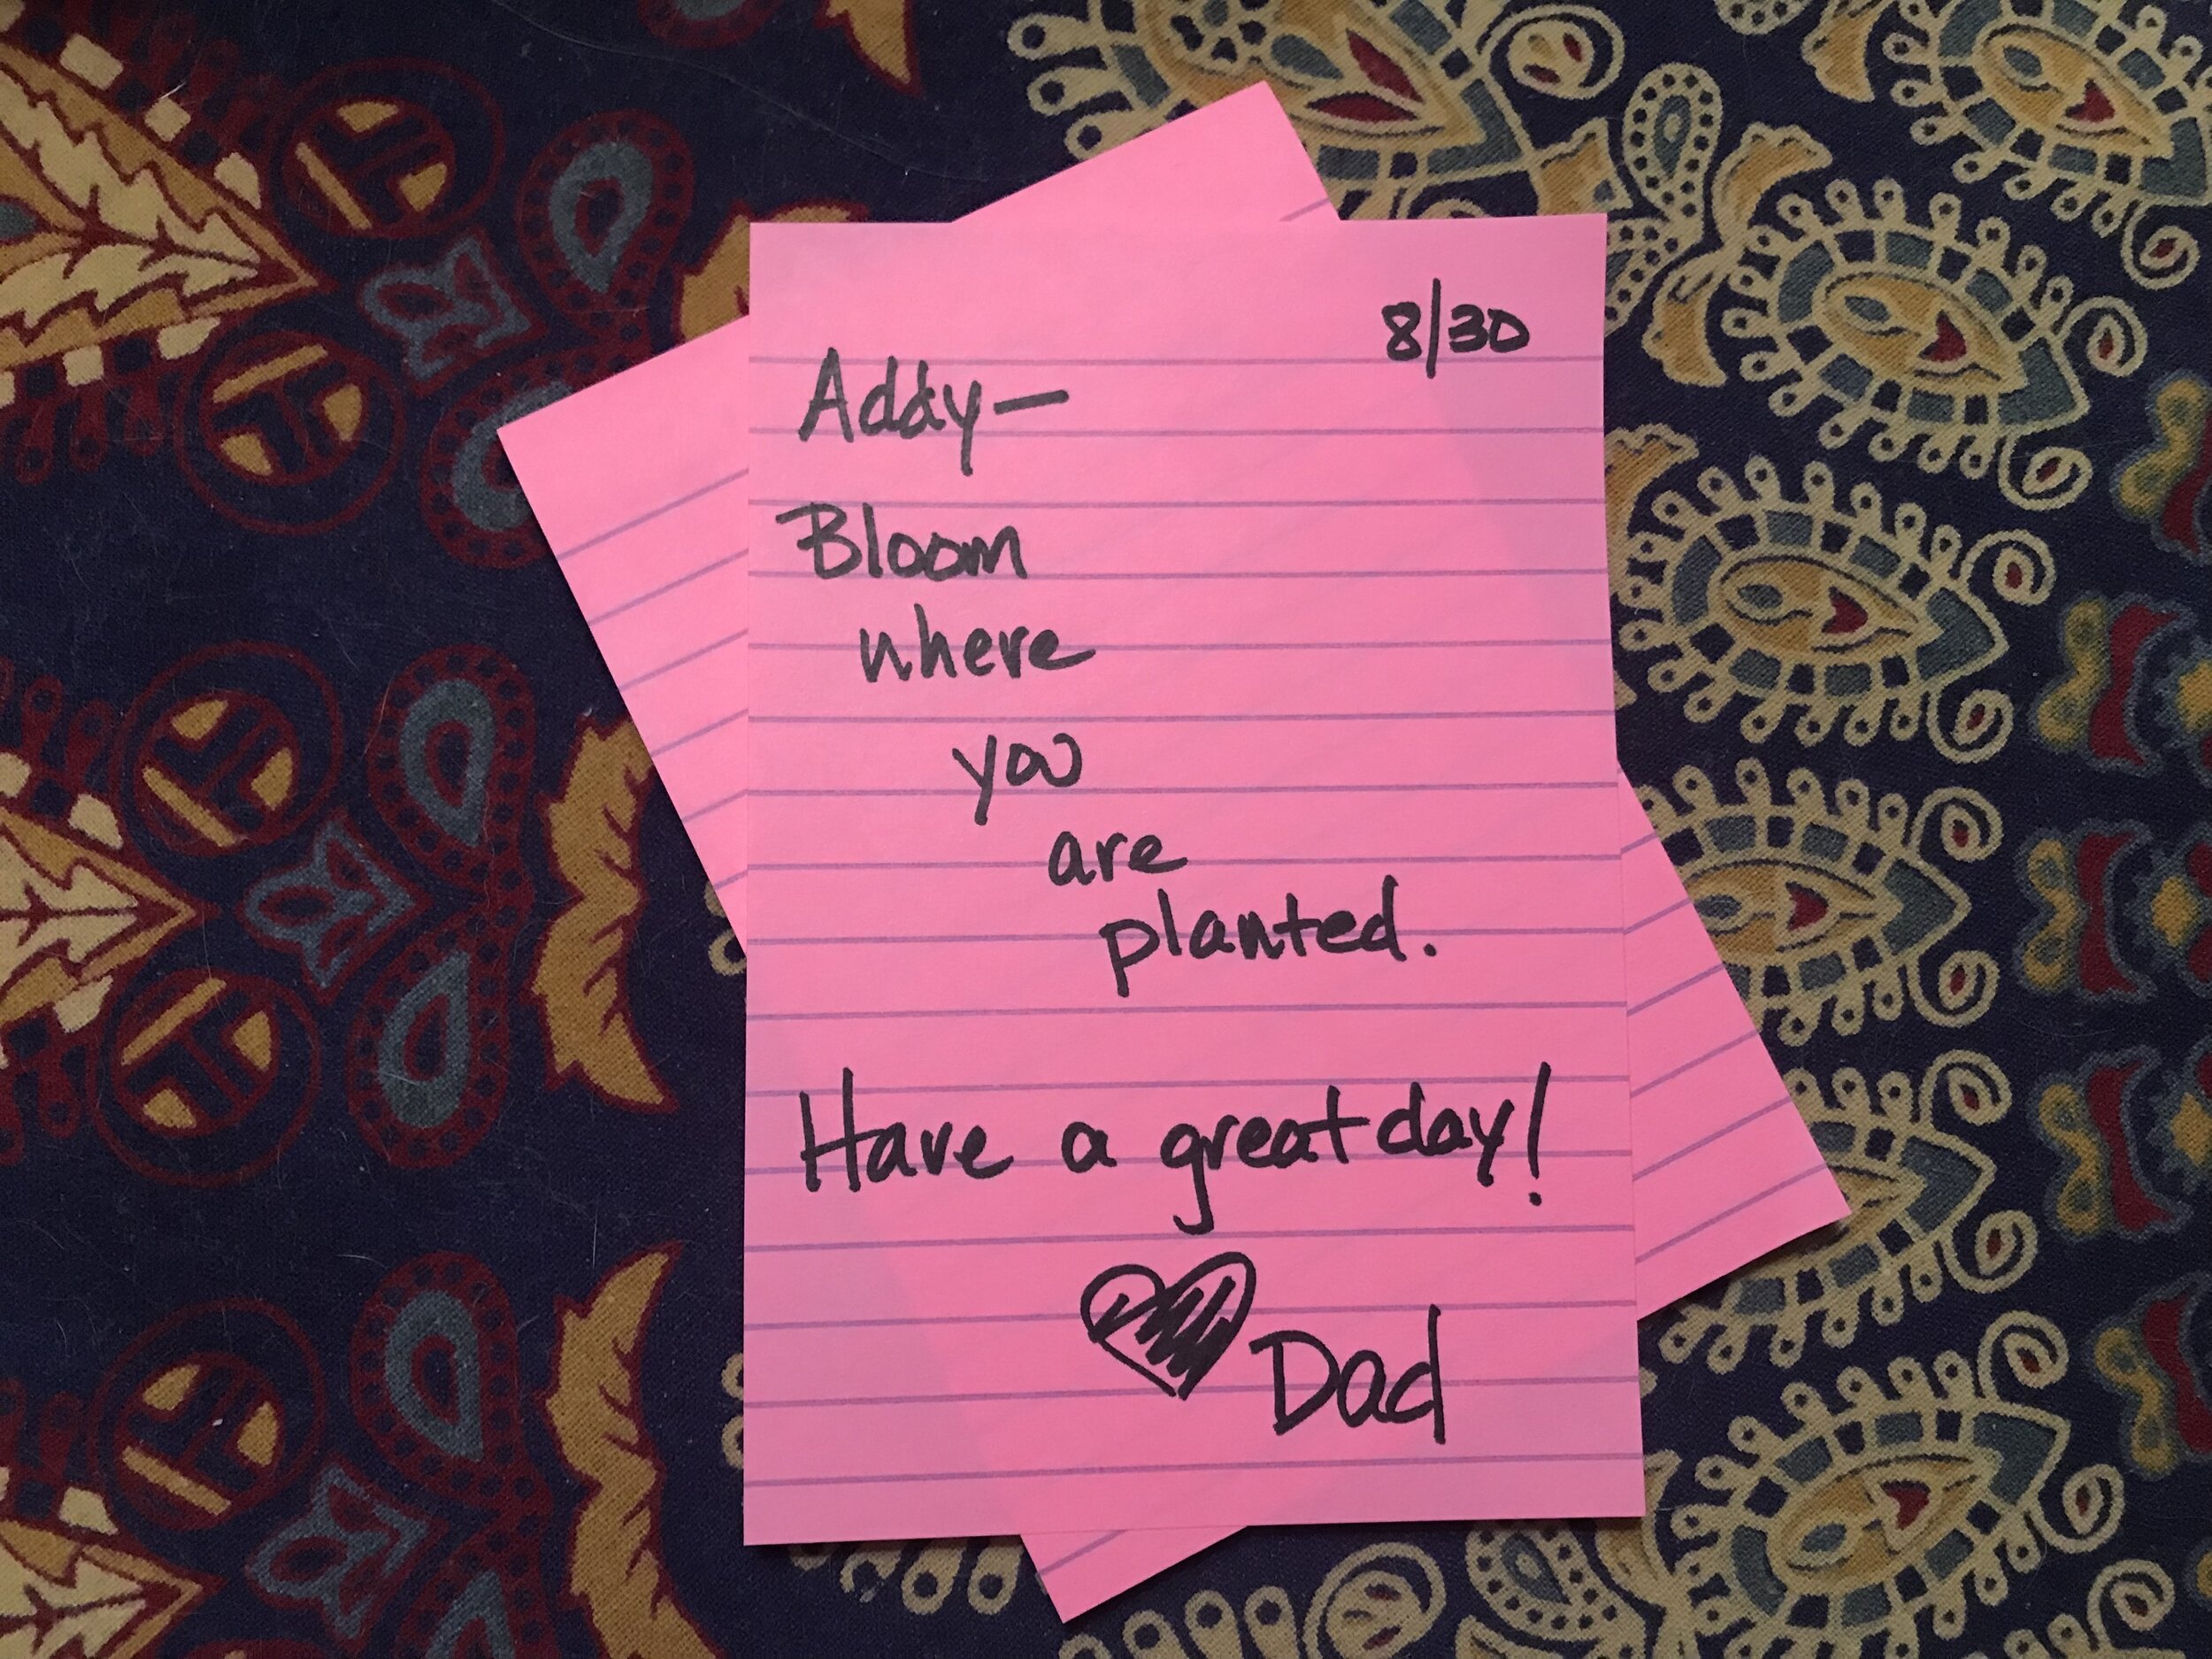 8/30
Addy—
Bloom
where
you
are
planted.
Have a great day!
Dad